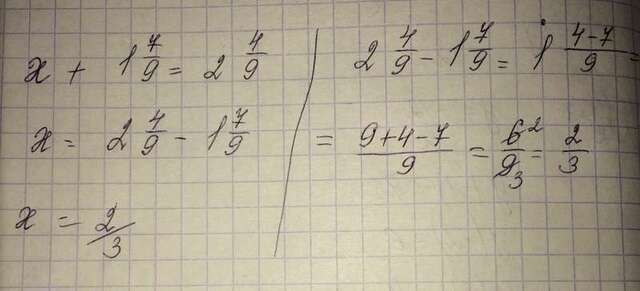 x + 1 7/9 = 2 4/9
x = 2 4/9 - 1 7/9
x = 2/3
2 4/9 - 1 7/9 = 1 4-7/9 =
= 9+4-7/9 = 6 2/9 3 = 2/3